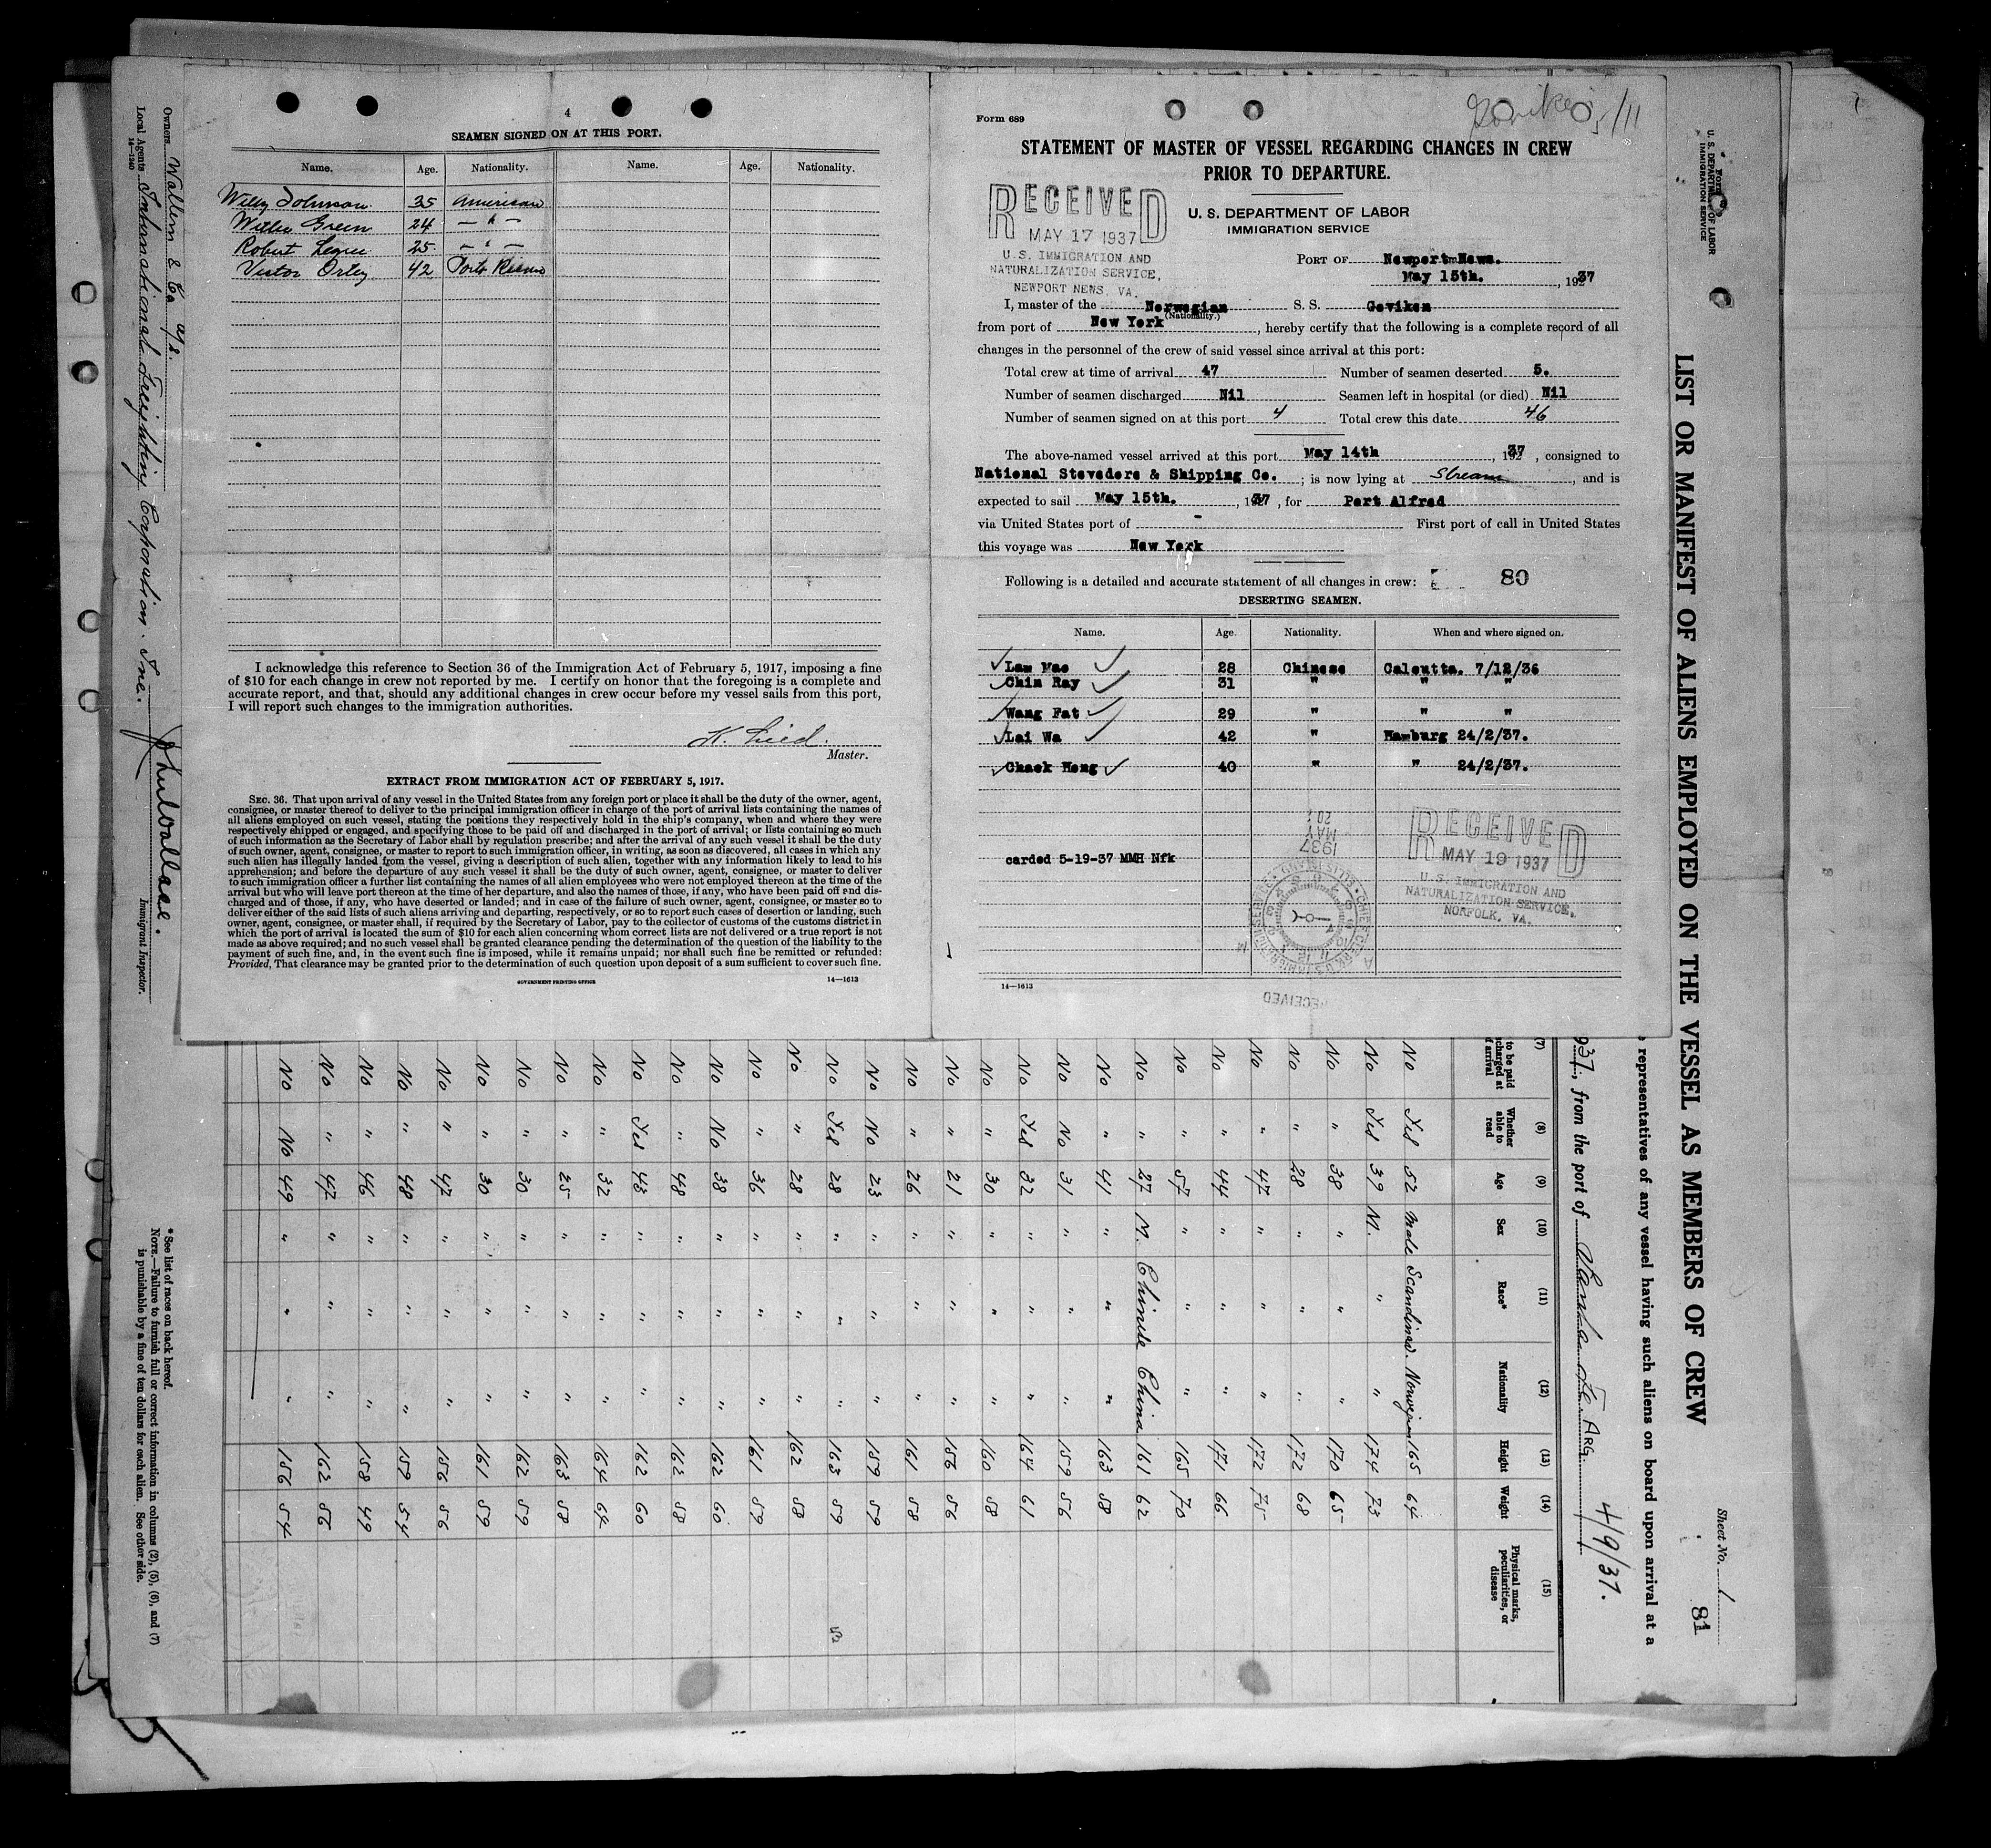 4
SEAMEN SIGNED ON AT THIS PORT.
Name. Age. Nationality. Name. Age. Nationality.
Wiley Johnson 35 American
Green 24 — " —
Robert 25 — " —
Victor Ortez 42 Porto
I acknowledge this reference to Section 36 of the Immigration Act of February 5, 1917, imposing a fine
of $10 for each change in crew not reported by me. I certify on honor that the foregoing is a complete and
accurate report, and that, should any additional changes in crew occur before my vessel sails from this port,
I will report such changes to the immigration authorities.
Master.
EXTRACT FROM IMMIGRATION ACT OF FEBRUARY 5, 1917.
SEC. 36. That upon arrival of any vessel in the United States from any foreign port or place it shall be the duty of the owner, agent,
consignee, or master thereof to deliver to the principal immigration officer in charge of the port of arrival lists containing the names of
all aliens employed on such vessel, stating the positions they respectively hold in the ship's company, when and where they were
respectively shipped or engaged, and specifying those to be paid off and discharged in the port of arrival; or lists containing so much
of such information as the Secretary of Labor shall by regulation prescribe; and after the arrival of any such vessel it shall be the duty
of such owner, agent, consignee, or master to report to such immigration officer, in writing, as soon as discovered, all cases in which any
such alien has illegally landed from the vessel, giving a description of such alien, together with any information likely to lead to his
apprehension; and before the departure of any such vessel it shall be the duty of such owner, agent, consignee, or master to deliver
to such immigration officer a further list containing the names of all alien employees who were not employed thereon at the time of the
arrival but who will leave port thereon at the time of her departure, and also the names of those, if any, who have been paid off and dis-
charged and of those, if any, who have deserted or landed; and in case of the failure of such owner, agent, consignee, or master so to
deliver either of the said lists of such aliens arriving and departing, respectively, or so to report such cases of desertion or landing, such
owner, agent, consignee, or master shall, if required by the Secretary of Labor, pay to the collector of customs of the customs district in
which the port of arrival is located the sum of $10 for each alien concerning whom correct lists are not delivered or a true report is not
made as above required; and no such vessel shall be granted clearance pending the determination of the question of the liability to the
payment of such fine, and, in the event such fine is imposed, while it remains unpaid; nor shall such fine be remitted or refunded:
Provided, That clearance may be granted prior to the determination of such question upon deposit of a sum sufficient to cover such fine.
GOVERNMENT PRINTING OFFICE
14—1613
Form 689
5/11
STATEMENT OF MASTER OF VESSEL REGARDING CHANGES IN CREW
PRIOR TO DEPARTURE.
RECEIVED
MAY 17 1937
U.S. IMMIGRATION AND
NATURALIZATION SERVICE,
NEWPORT NEWS, VA.
U. S. DEPARTMENT OF LABOR
IMMIGRATION SERVICE
PORT OF Newport News.
May 15th. , 1937
I, master of the Norwegian S. S. Goviken
(Nationality.)
from port of New York, hereby certify that the following is a complete record of all
changes in the personnel of the crew of said vessel since arrival at this port:
Total crew at time of arrival 47 Number of seamen deserted 5.
Number of seamen discharged Nil Seamen left in hospital (or died) Nil
Number of seamen signed on at this port 4 Total crew this date 46
The above-named vessel arrived at this port May 14th, 1937, consigned to
National Stevedore & Shipping Co. ; is now lying at Stream, and is
expected to sail May 15th. , 1937, for Port Alfred
via United States port of - First port of call in United States
this voyage was New York
Following is a detailed and accurate statement of all changes in crew: 80
DESERTING SEAMEN.
Name. Age. Nationality. When and where signed on.
Law Mae 28 Chinese Calcutta. 7/12/36
Chin Ray 31 " " "
Wang Fat 29 " " "
Lai Wa 42 " Hamburg 24/2/37.
Chack Heng 40 " " 24/2/37.
carded 5-19-37 MMH Nfk
RECEIVED
MAY 19 1937
U.S. IMMIGRATION AND
NATURALIZATION SERVICE,
NORFOLK, VA.
RECEIVED
14—1613
Form
U. S. DEPARTMENT OF LABOR
IMMIGRATION SERVICE
LIST OR MANIFEST OF ALIENS EMPLOYED ON THE VESSEL AS MEMBERS OF CREW
Sheet No. 1
81
representatives of any vessel having such aliens on board upon arrival at a
937, from the port of Santa Fe ARG. 4/9/37.
(7) (8) (9) (10) (11) (12) (13) (14) (15)
to be paid
Whether able to read
Age
Sex
Race*
Nationality
Height
Weight
Physical marks, peculiarities, or disease
No Yes 52 Male Scandinav. Norwegian 165 64
No Yes 39 M. " " 174 73
No " 38 " " " 170 65
No " 28 " " " 172 68
No " 47 " " " 172 75
No " 44 " " " 171 66
No " 57 " " " 165 70
No " 27 M. Chinese China 161 62
No " 41 " " " 163 58
No No 31 " " " 159 56
No Yes 32 " " " 164 61
No " 30 " " " 160 58
No " 21 " " " 156 56
No " 26 " " " 161 58
No No 23 " " " 159 59
No Yes 28 " " " 163 59
No " 28 " " " 162 58
No " 36 " " " 161 59
No No 38 " " " 162 60
No " 48 " " " 162 58
No Yes 43 " " " 162 60
No " 32 " " " 164 64
No " 25 " " " 163 58
No " 30 " " " 162 59
No " 30 " " " 161 59
No " 47 " " " 156 56
No " 48 " " " 159 54
No " 46 " " " 158 49
No " 47 " " " 162 56
No No 49 " " " 156 54
Owners Wallem & Co a/s.
Local Agents International Freighting Corporation. Inc.
14—1240
Immigrant Inspector.
* See list of races on back hereof.
NOTE.—Failure to furnish full or correct information in columns (2), (5), (6), and (7)
is punishable by a fine of ten dollars for each alien. See other side.